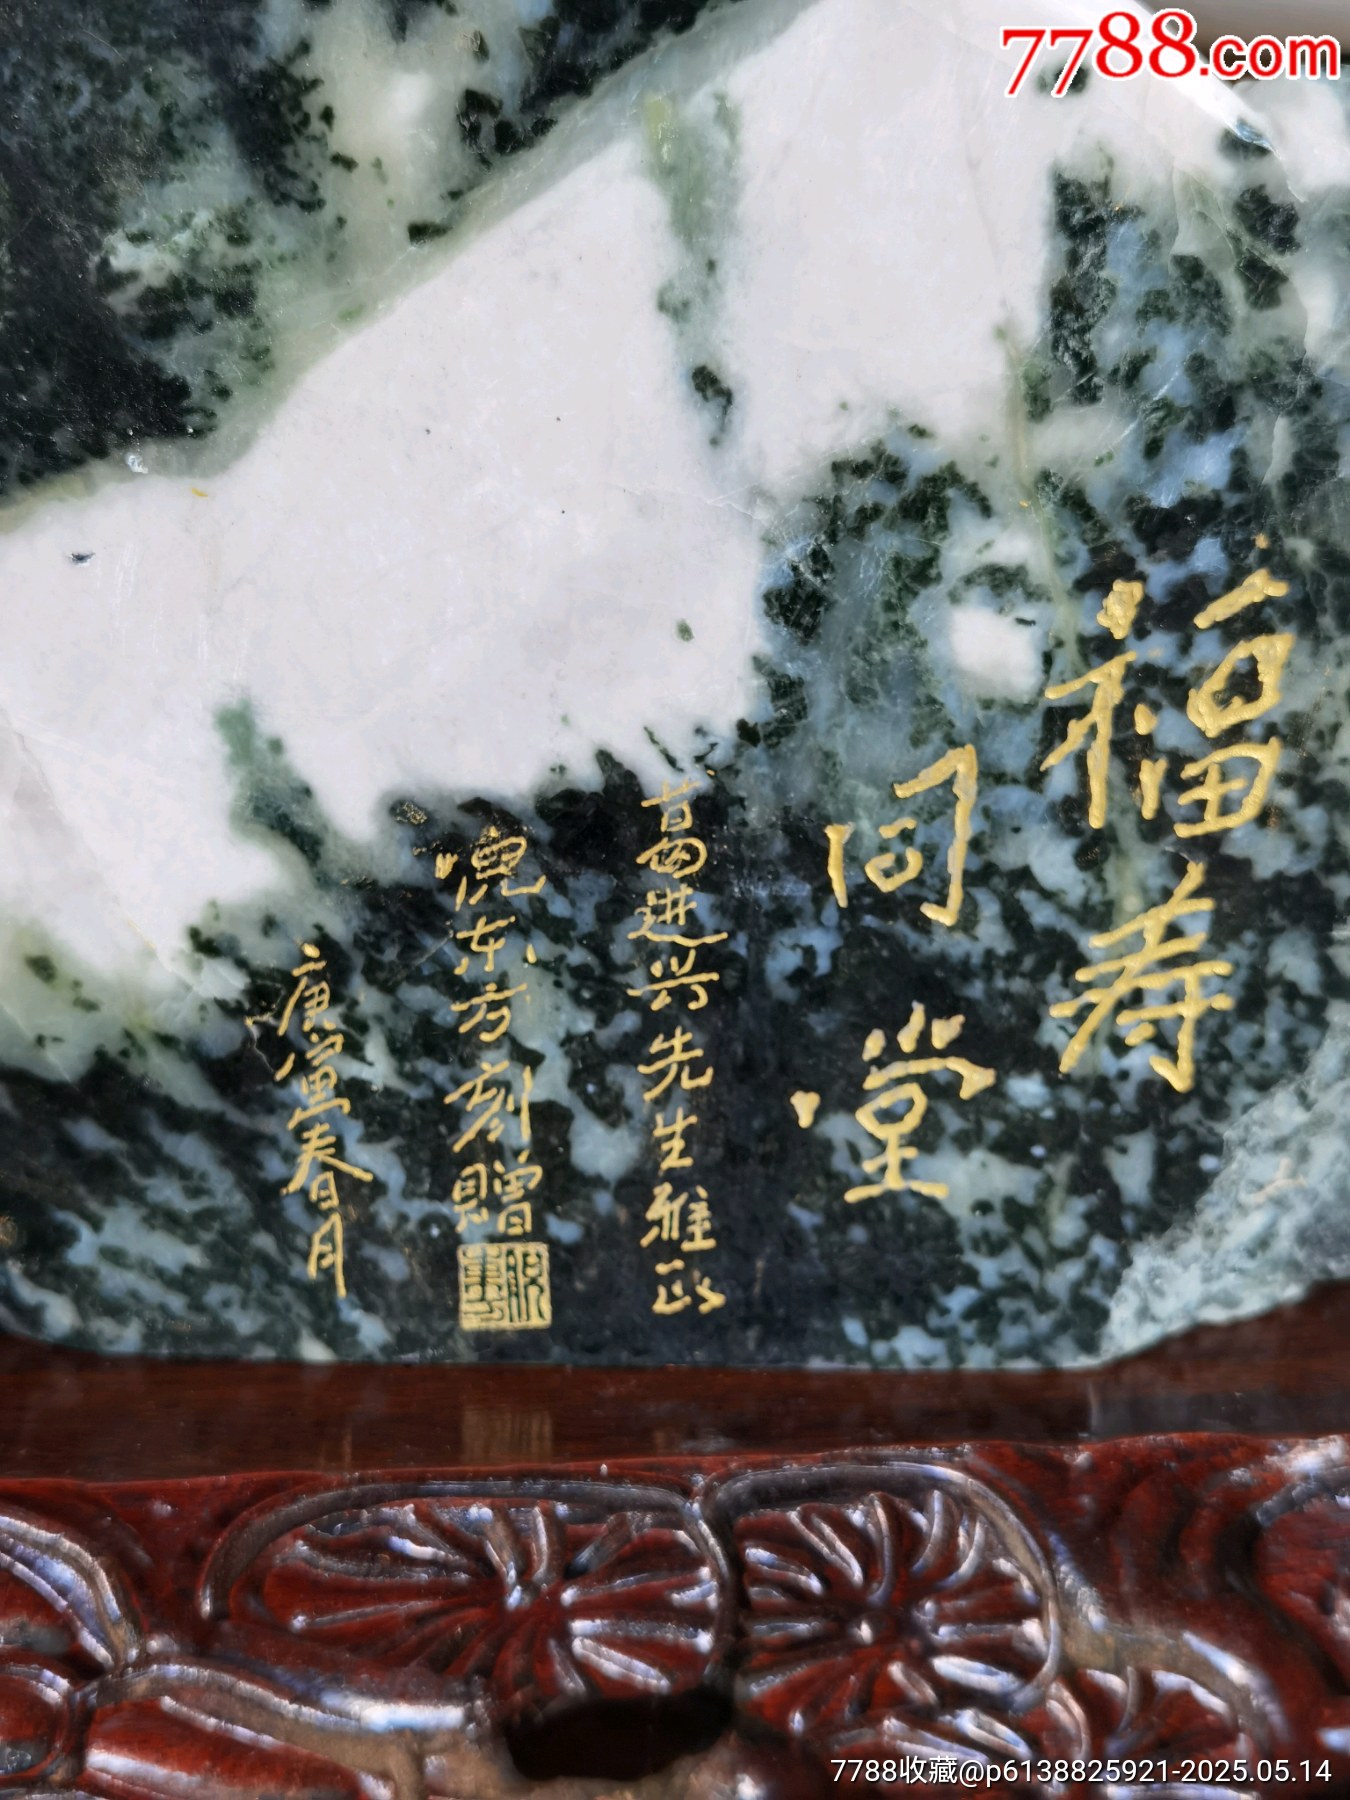 7788.com
福寿
同堂
葛进兴先生雅正
倪东方刻赠
庚寅春月
7788收藏@p6138825921-2025.05.14